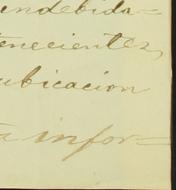 indebida=
tenecientes,
ubicacion
a infor=